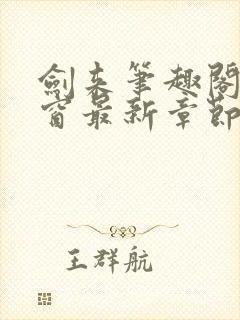 劍来筆趣閣
窗最新章節
王群航